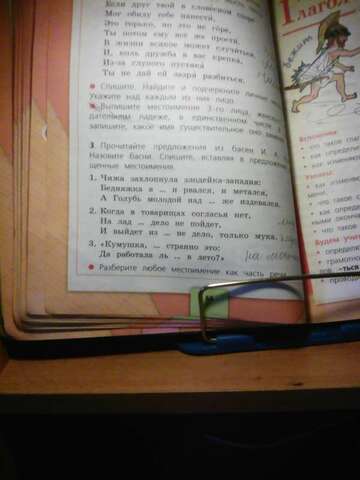 Если друг твой в словесном споре
Мог обиду тебе нанести,
Это горько, но это не горе,
Ты потом ему всё же прости.
В жизни всякое может случиться,
И, коль дружба у вас крепка,
Из-за глупого пустяка
Ты не дай ей зазря разбиться.
● Спишите. Найдите и подчеркните личные
Укажите над каждым из них лицо.
● Выпишите местоимение 3-го лица,
дательном падеже, в единственном числе
запишите, какое имя существительное оно
3. Прочитайте предложения из басен И.
Назовите басни. Спишите, вставляя в предложения
щенные местоимения.
1. Чижа захлопнула злодейка-западня:
Бедняжка в ... и рвался, и метался,
А Голубь молодой над ... же издевался.
2. Когда в товарищах согласья нет,
На лад ... дело не пойдёт,
И выйдет из ... не дело, только мука.
3. «Кумушка, ... странно это:
Да работала ль ... в лето?»
● Разберите любое местоимение как часть речи
Глагол
Вспомним:
• что такое
• как определи
• как изменяю
Узнаем:
• как изменя
мени.
• что такое
• как опред
• что такое
Будем учит
• определя
• грамотно
лов -ться
• проводи